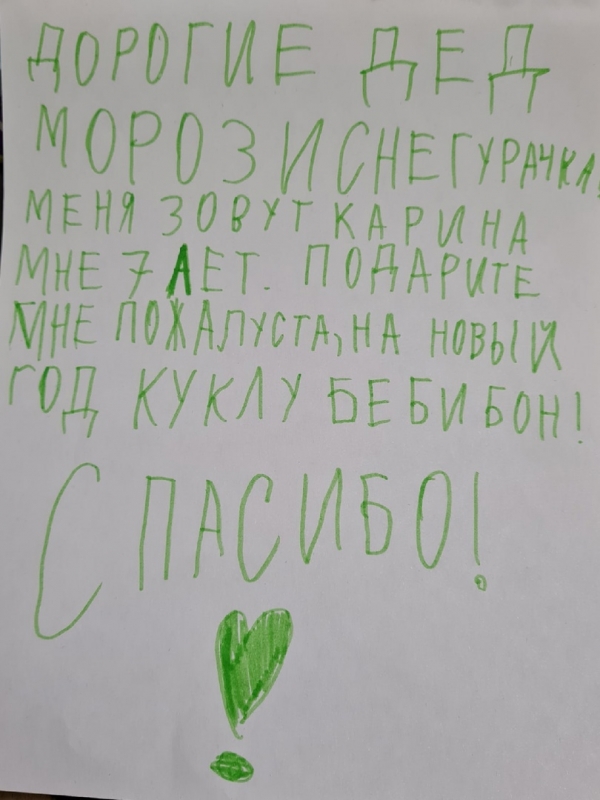 ДОРОГИЕ ДЕД
МОРОЗ И СНЕГУРАЧКА!
МЕНЯ ЗОВУТ КАРИНА
МНЕ 7 ЛЕТ. ПОДАРИТЕ
МНЕ ПОЖАЛУСТА, НА НОВЫЙ
ГОД КУКЛУ БЕБИ БОН!
СПАСИБО!